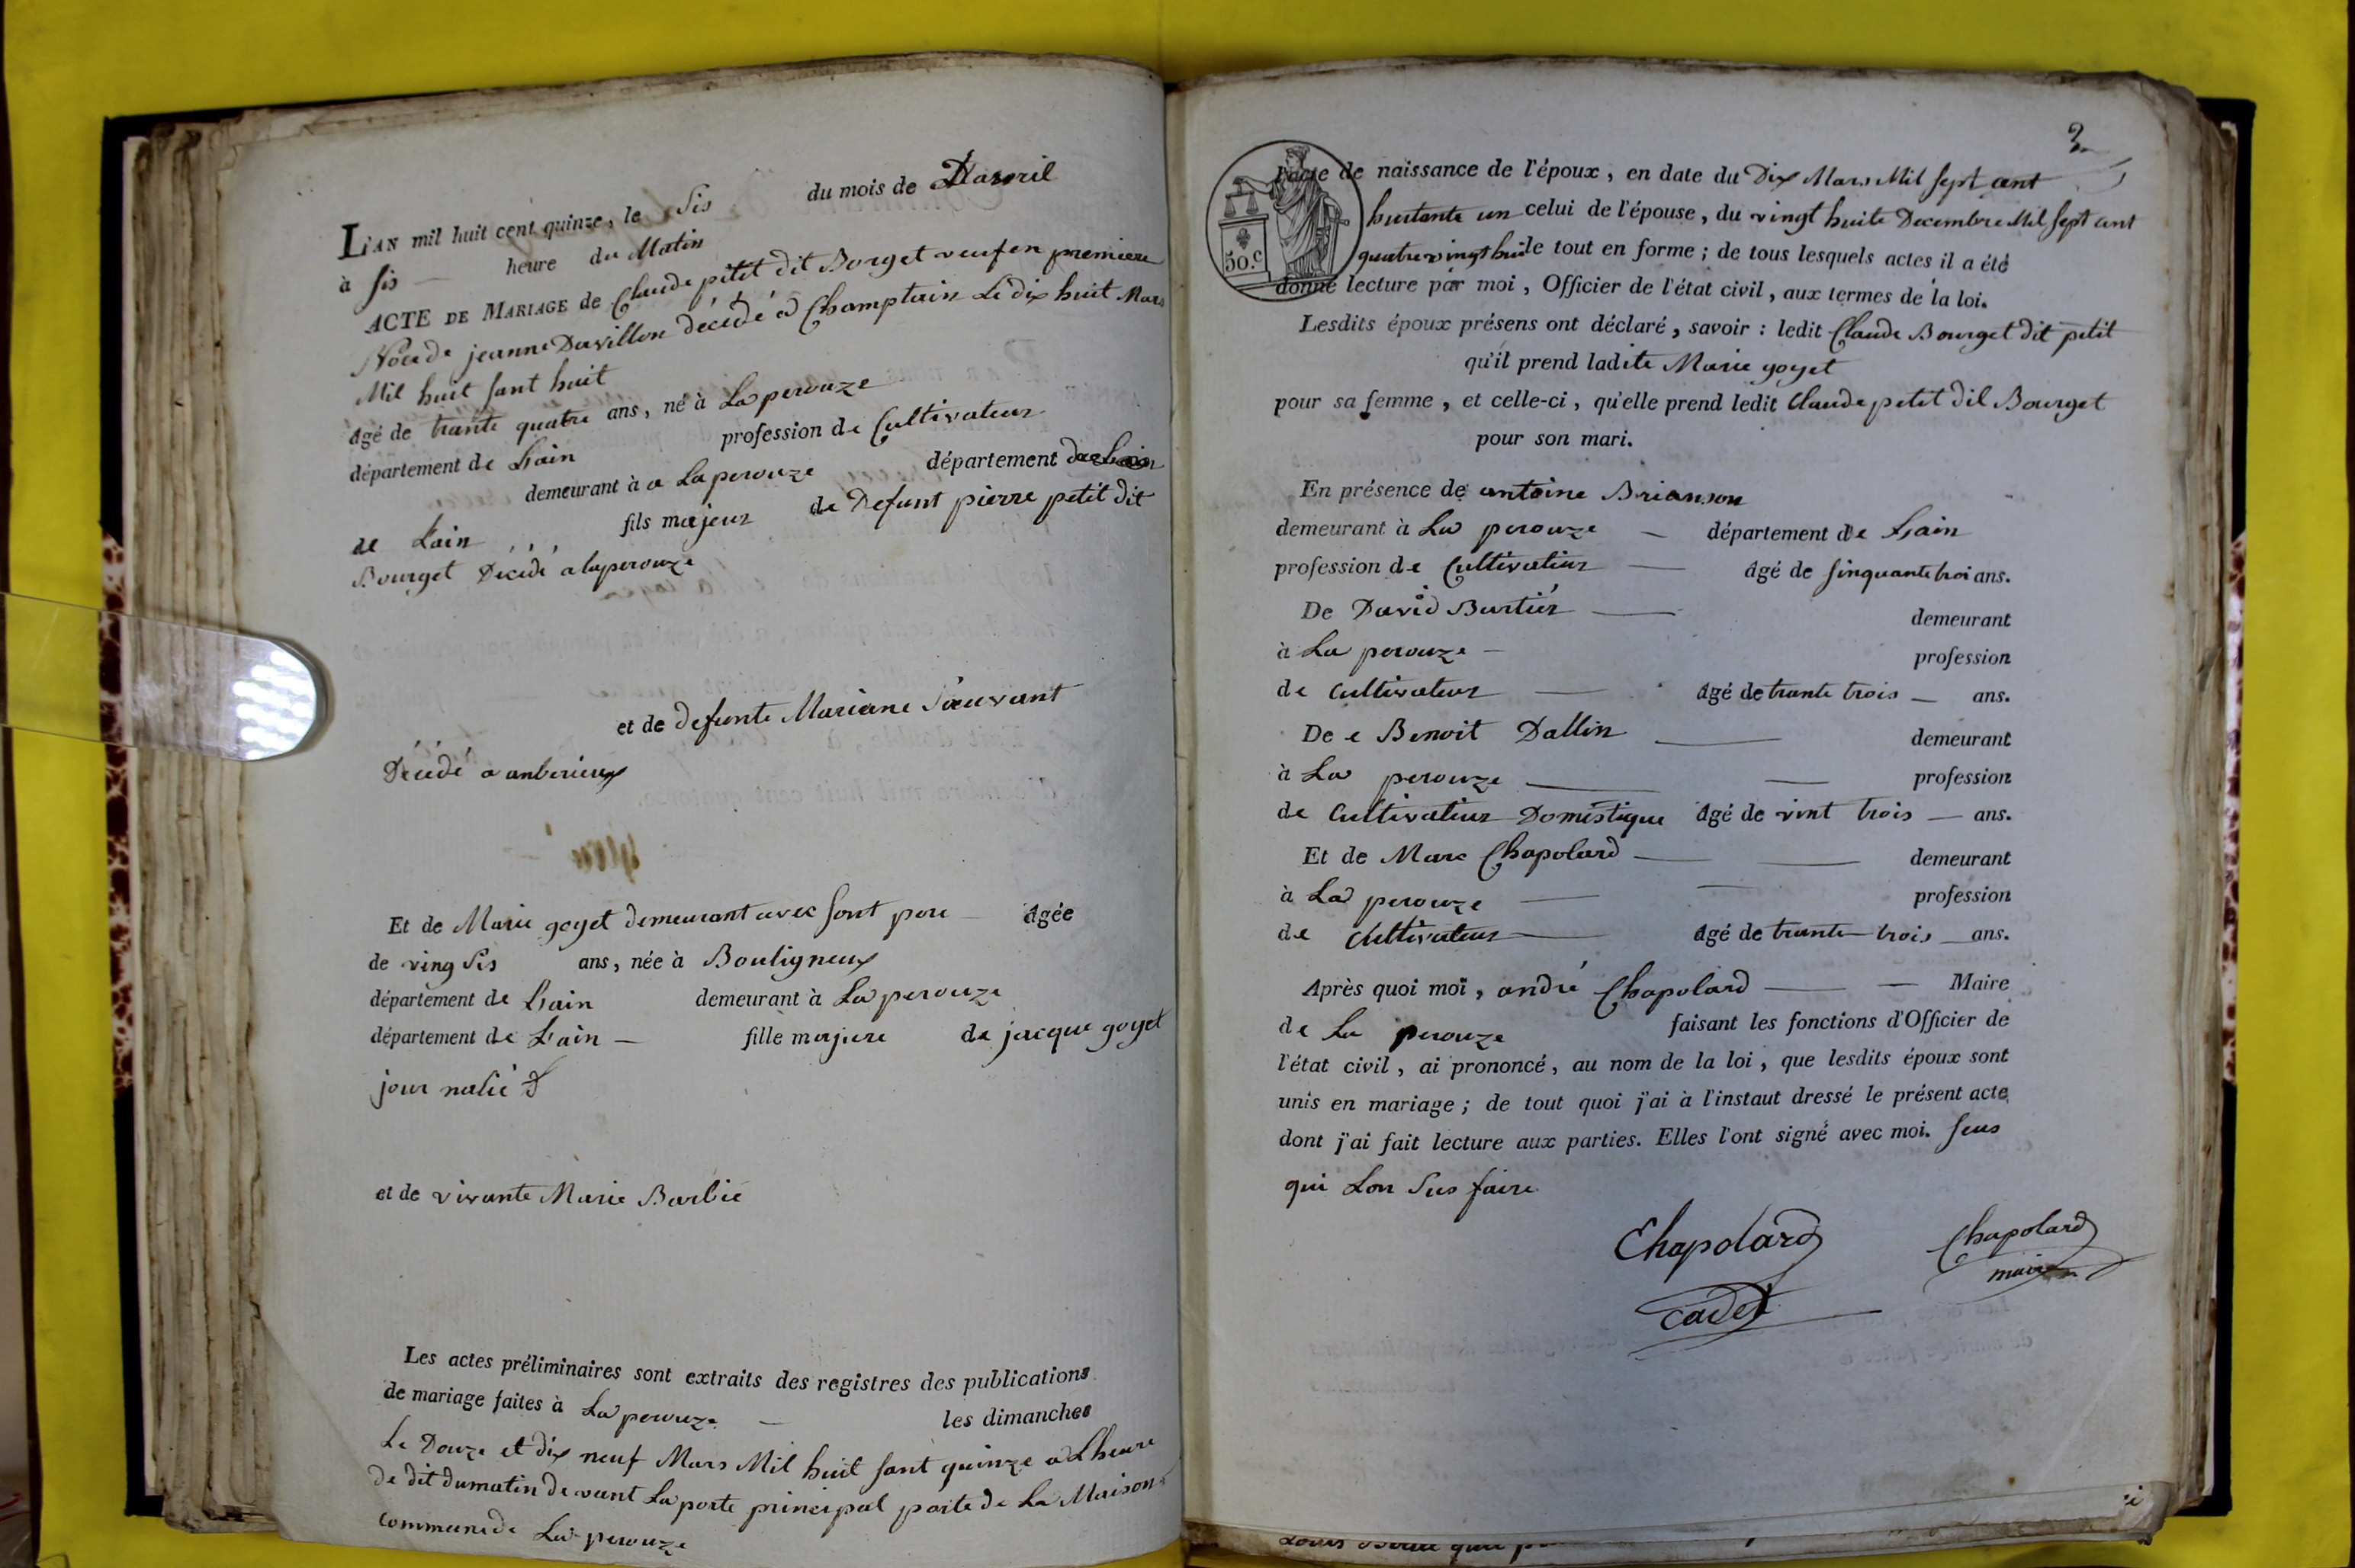 L'AN mil huit cent quinze, le Sis du mois de Davril
à sis heure du Matin
ACTE DE MARIAGE de Claude petit dit Borget veuf en premiere
Noce de jeanne Duvillon décédé a Champtein Le dix huit Mars
Mil huit sant huit
âgé de trante quatre ans, né à La perouze
département de Lain profession de Cultivateur
demeurant à a La perouze département
de Lain fils majeur de Defunt pierre petit dit
Bourget Décédé a laperouze
et de defunte Mariane Sauvant
Décédé a anberieux
Et de Marie goyet demeurant avec sont pere âgée
de ving sis ans, née à Bouligneux
département de Lain demeurant à La perouze
département de Lain fille majeure de jacque goyet
jour nalié
et de vivante Marie Barbié
Les actes préliminaires sont extraits des registres des publications
de mariage faites à La perouze les dimanches
Le Douze et dix neuf Mars Mil huit sant quinze a Lheure
de dit du matin de vant La porte principal porte de La Maison
commune de La perouze
3
l'acte de naissance de l'époux, en date du Dix Mars Mil sept cent
huitante un celui de l'épouse, du vingt huite Decembre Mil sept cent
quatre vingt huit le tout en forme ; de tous lesquels actes il a été
50.c
donné lecture par moi, Officier de l'état civil, aux termes de la loi.
Lesdits époux présens ont déclaré, savoir : ledit Claude Bourget dit petit
qu'il prend ladite Marie goyet
pour sa femme, et celle-ci, qu'elle prend ledit Claude petit dit Bourget
pour son mari.
En présence de antoine Brianson
demeurant à La perouze département de Lain
profession de Cultivateur âgé de sinquante troi ans.
De David Burtier demeurant
à La perouze profession
de cultivateur âgé de trante trois ans.
De e Benoit Dallin demeurant
à La perouze profession
de Cultivateur Domestique âgé de vint trois ans.
Et de Marc Chapolard demeurant
à La perouze profession
de Cultivateur âgé de trante trois ans.
Après quoi moi, andré Chapolard Maire
de La perouze faisant les fonctions d'Officier de
l'état civil, ai prononcé, au nom de la loi, que lesdits époux sont
unis en mariage ; de tout quoi j'ai à l'instant dressé le présent acte
dont j'ai fait lecture aux parties. Elles l'ont signé avec moi. seus
qui Lon Sus faire
Chapolard Chapolard
cadet maire